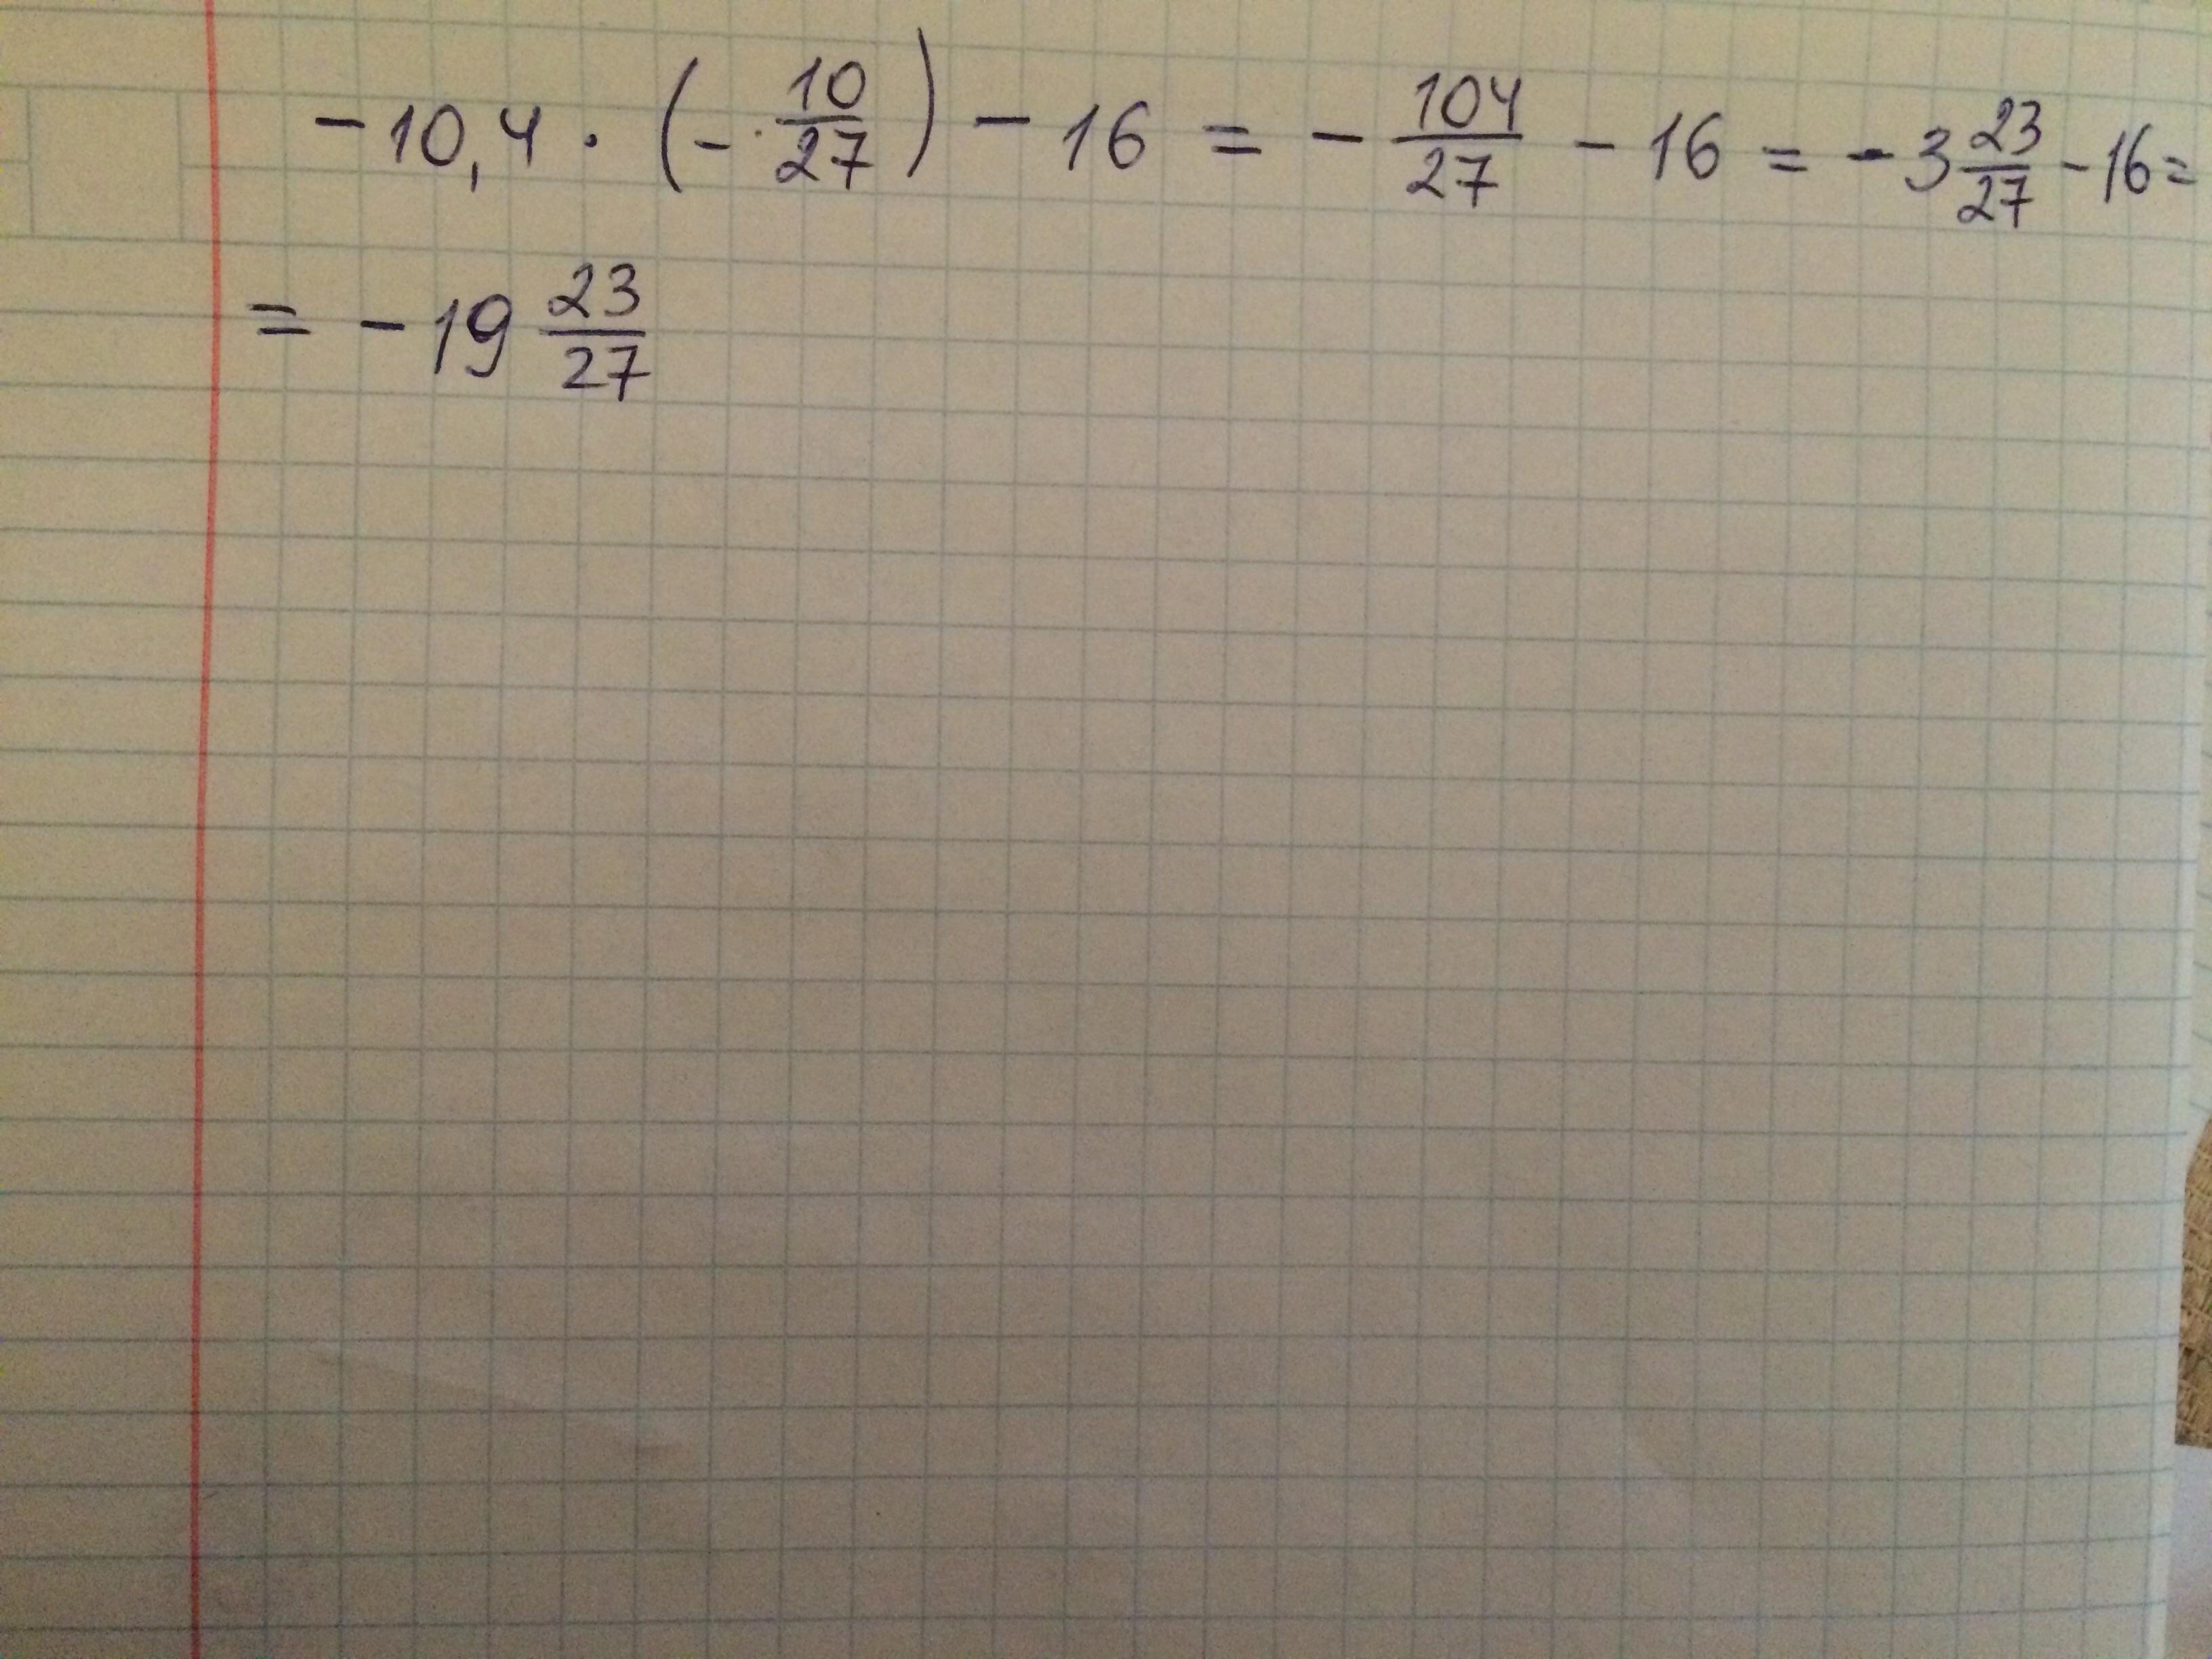 -10,4 · (- 10/27) - 16 = - 104/27 - 16 = - 3 23/27 - 16 =
= - 19 23/27